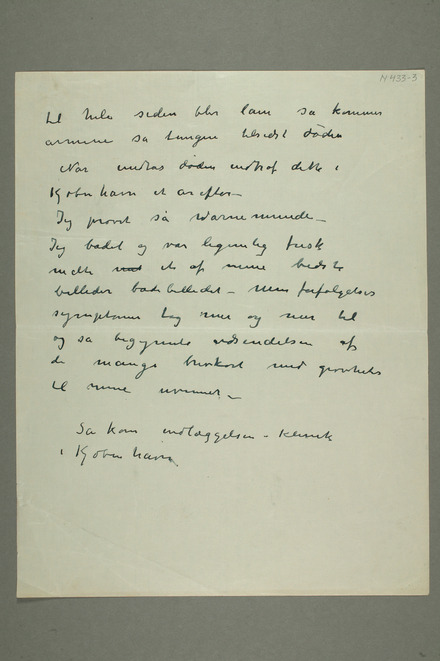 N 433-3
til hele siden blir lam så kommer
armene så tungen tilsidst døden
Når indtraf dette i
Kjøbenhavn et år efter –
Jeg prøvet så Warnemünde –
Jeg badet og var legemlig frisk
malte et af mine bedste
billeder badebilledet – Men forfølgelses
symptomer tog mer og mer til
og så begyndte udsendelsen af
de mange brevkort med grovheter
til mine uvenner –
Så kom indlæggelsen – klinik
i Kjøbenhavn